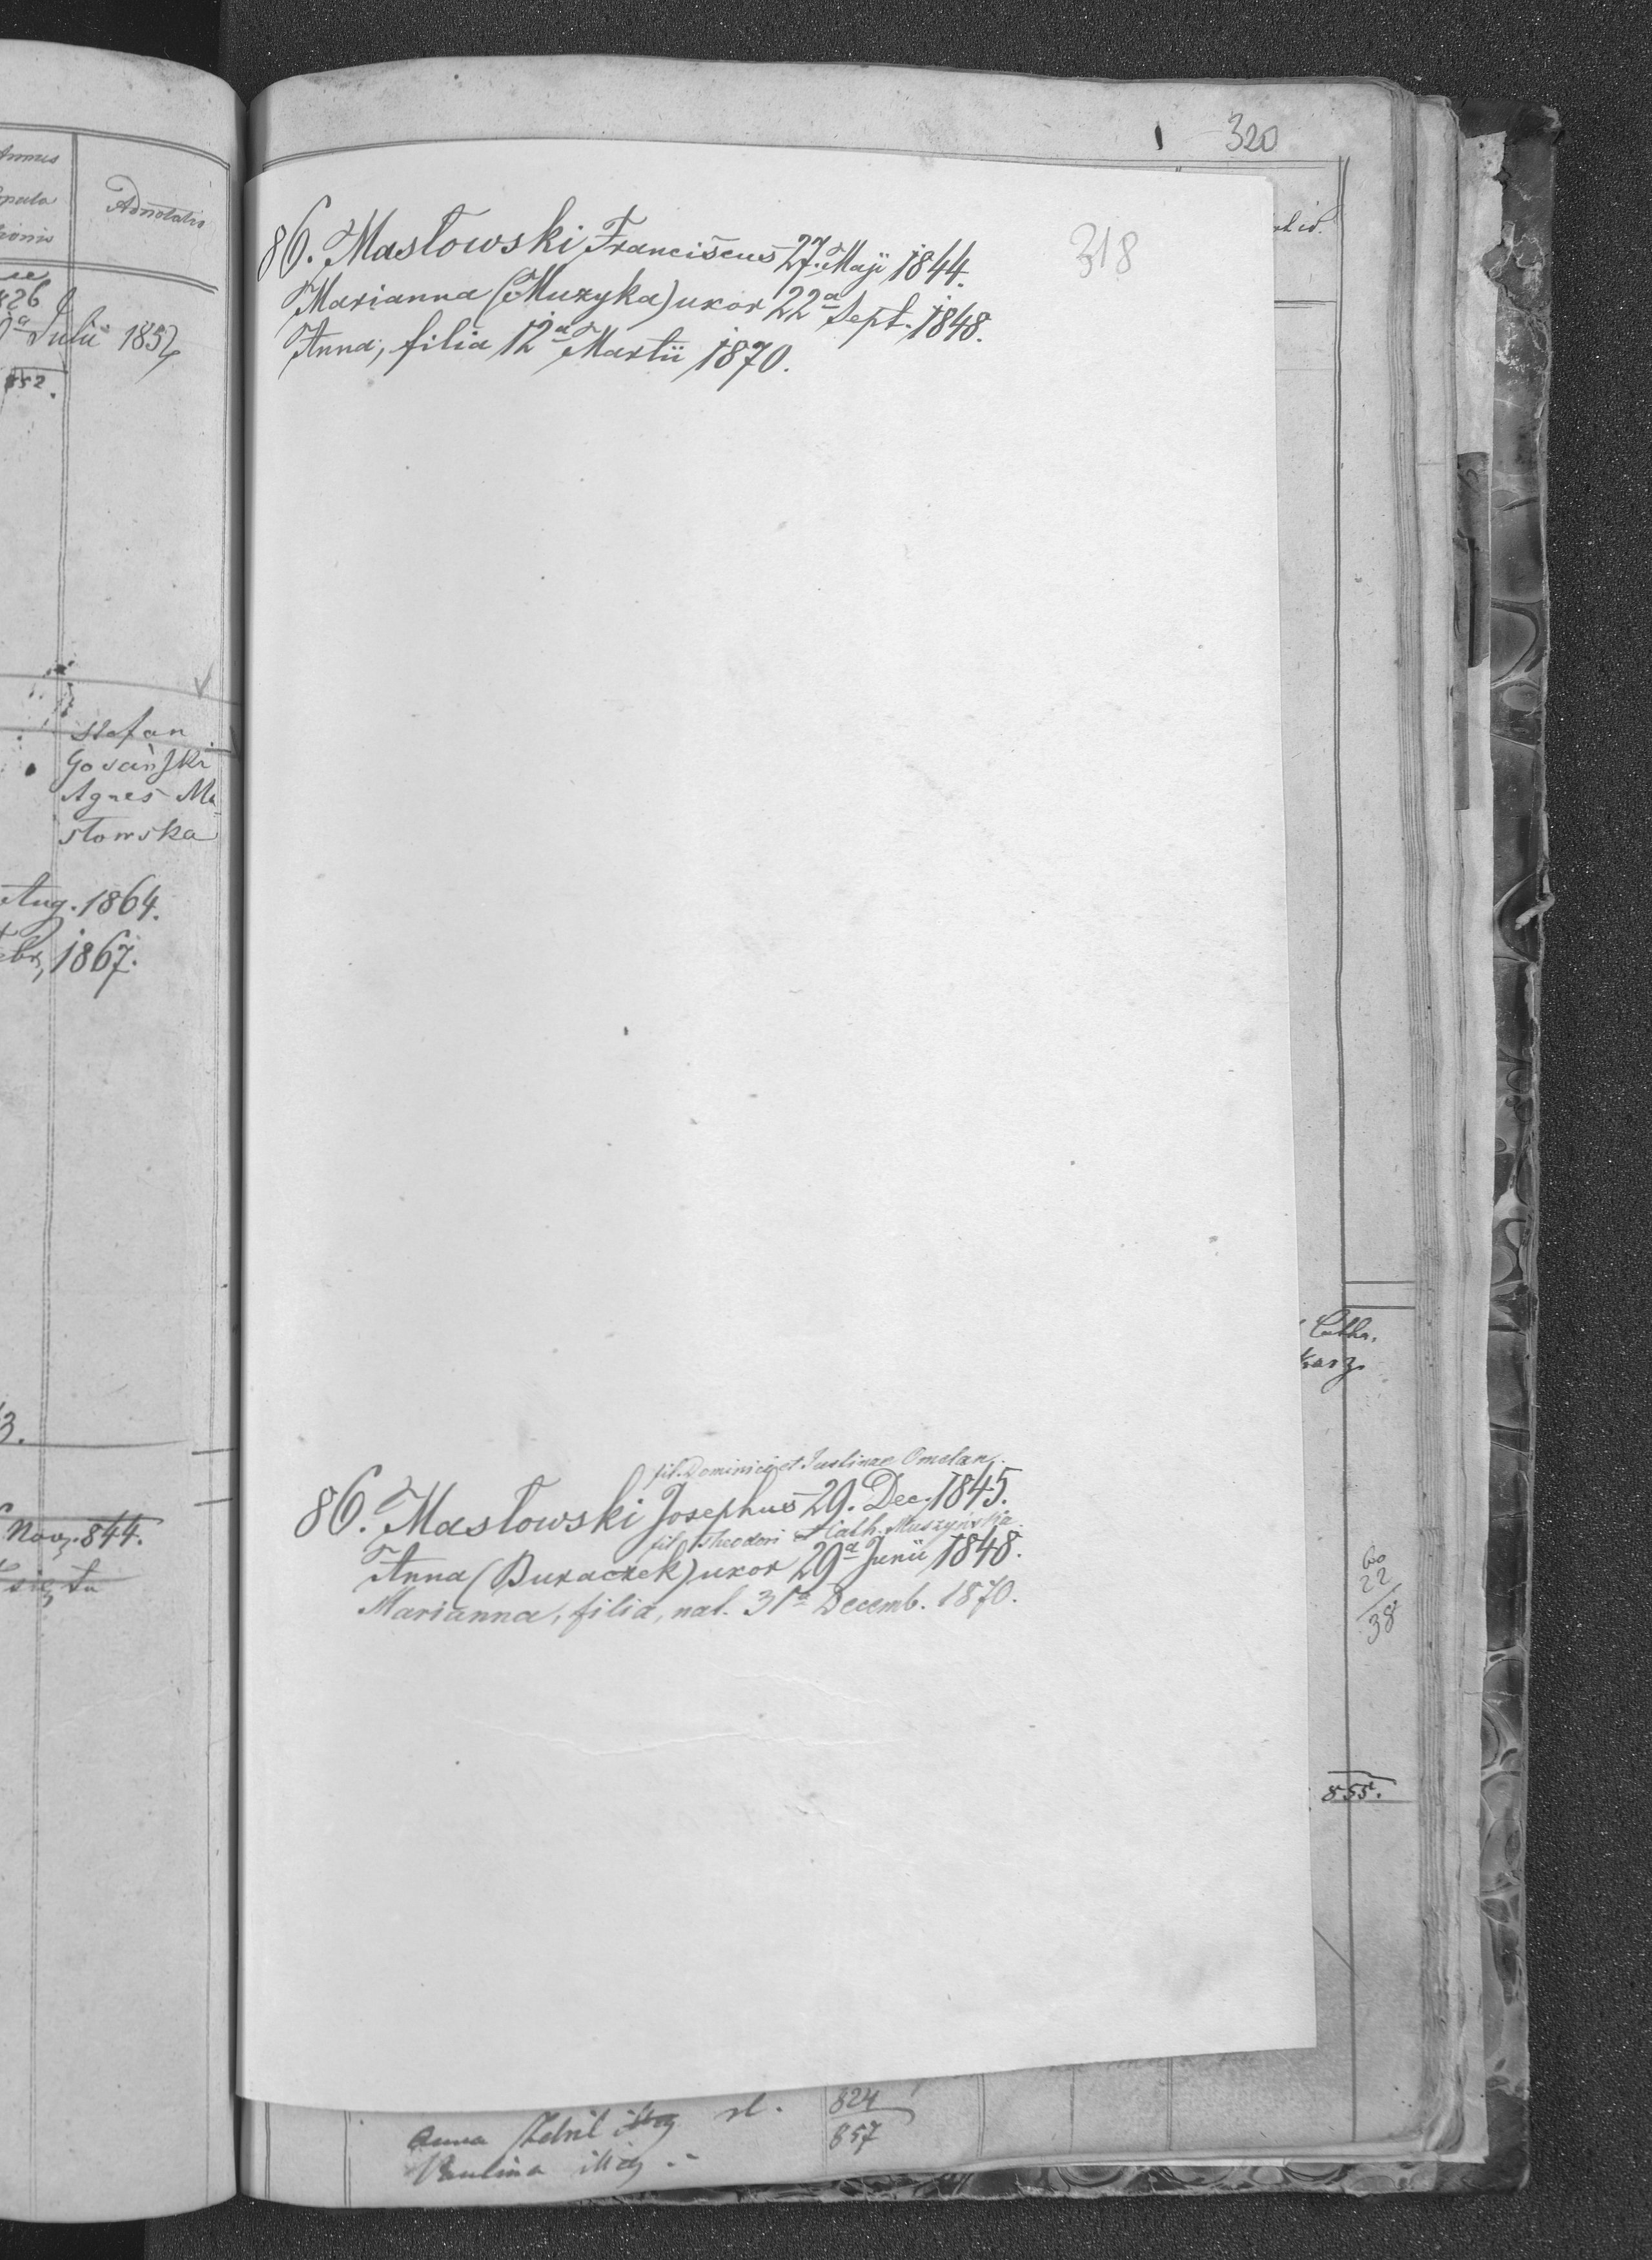 Adnotatio
826
Julii 1852
852.
Stefan
Agnes Ma-
słowska
Aug. 1864.
1867.
3.
Nov. 844.
320
318
86. Masłowski Franciscus 27. Maji 1844.
Marianna (Muzyka) uxor 22ª Sept. 1848.
Anna, filia 12ª Martii 1870.
fil. Dominici et Justinae Omelan.
86. Masłowski Josephus 29. Dec. 1845.
fil. Theodori et Cath. Muszyńska.
Anna (Buraczek) uxor 29ª Junii 1848.
Marianna, filia, nat. 31ª Decemb. 1870.
Cath.
60
22
38
855.
Anna
824
Paulina
857